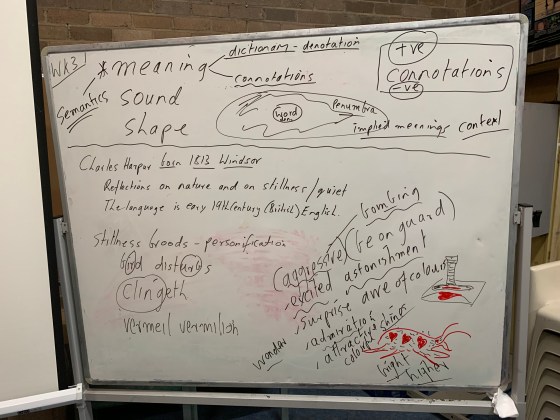 Wk3
* meaning
dictionary - denotation
connotations
Semantics
sound
shape
word
penumbra
implied meanings context
+ve
connotations
-ve
Charles Harpur born 1813 Windsor
Reflections on nature and on stillness/quiet
The language is early 19th Century (British) English.
Stillness broods - personification
bird disturbs
Clingeth
vermeil vermilish
bombing
(aggressive) (be on guard)
excited astonishment
surprise awe of colour
admiration
attractive
colour
wonder
bright
higher